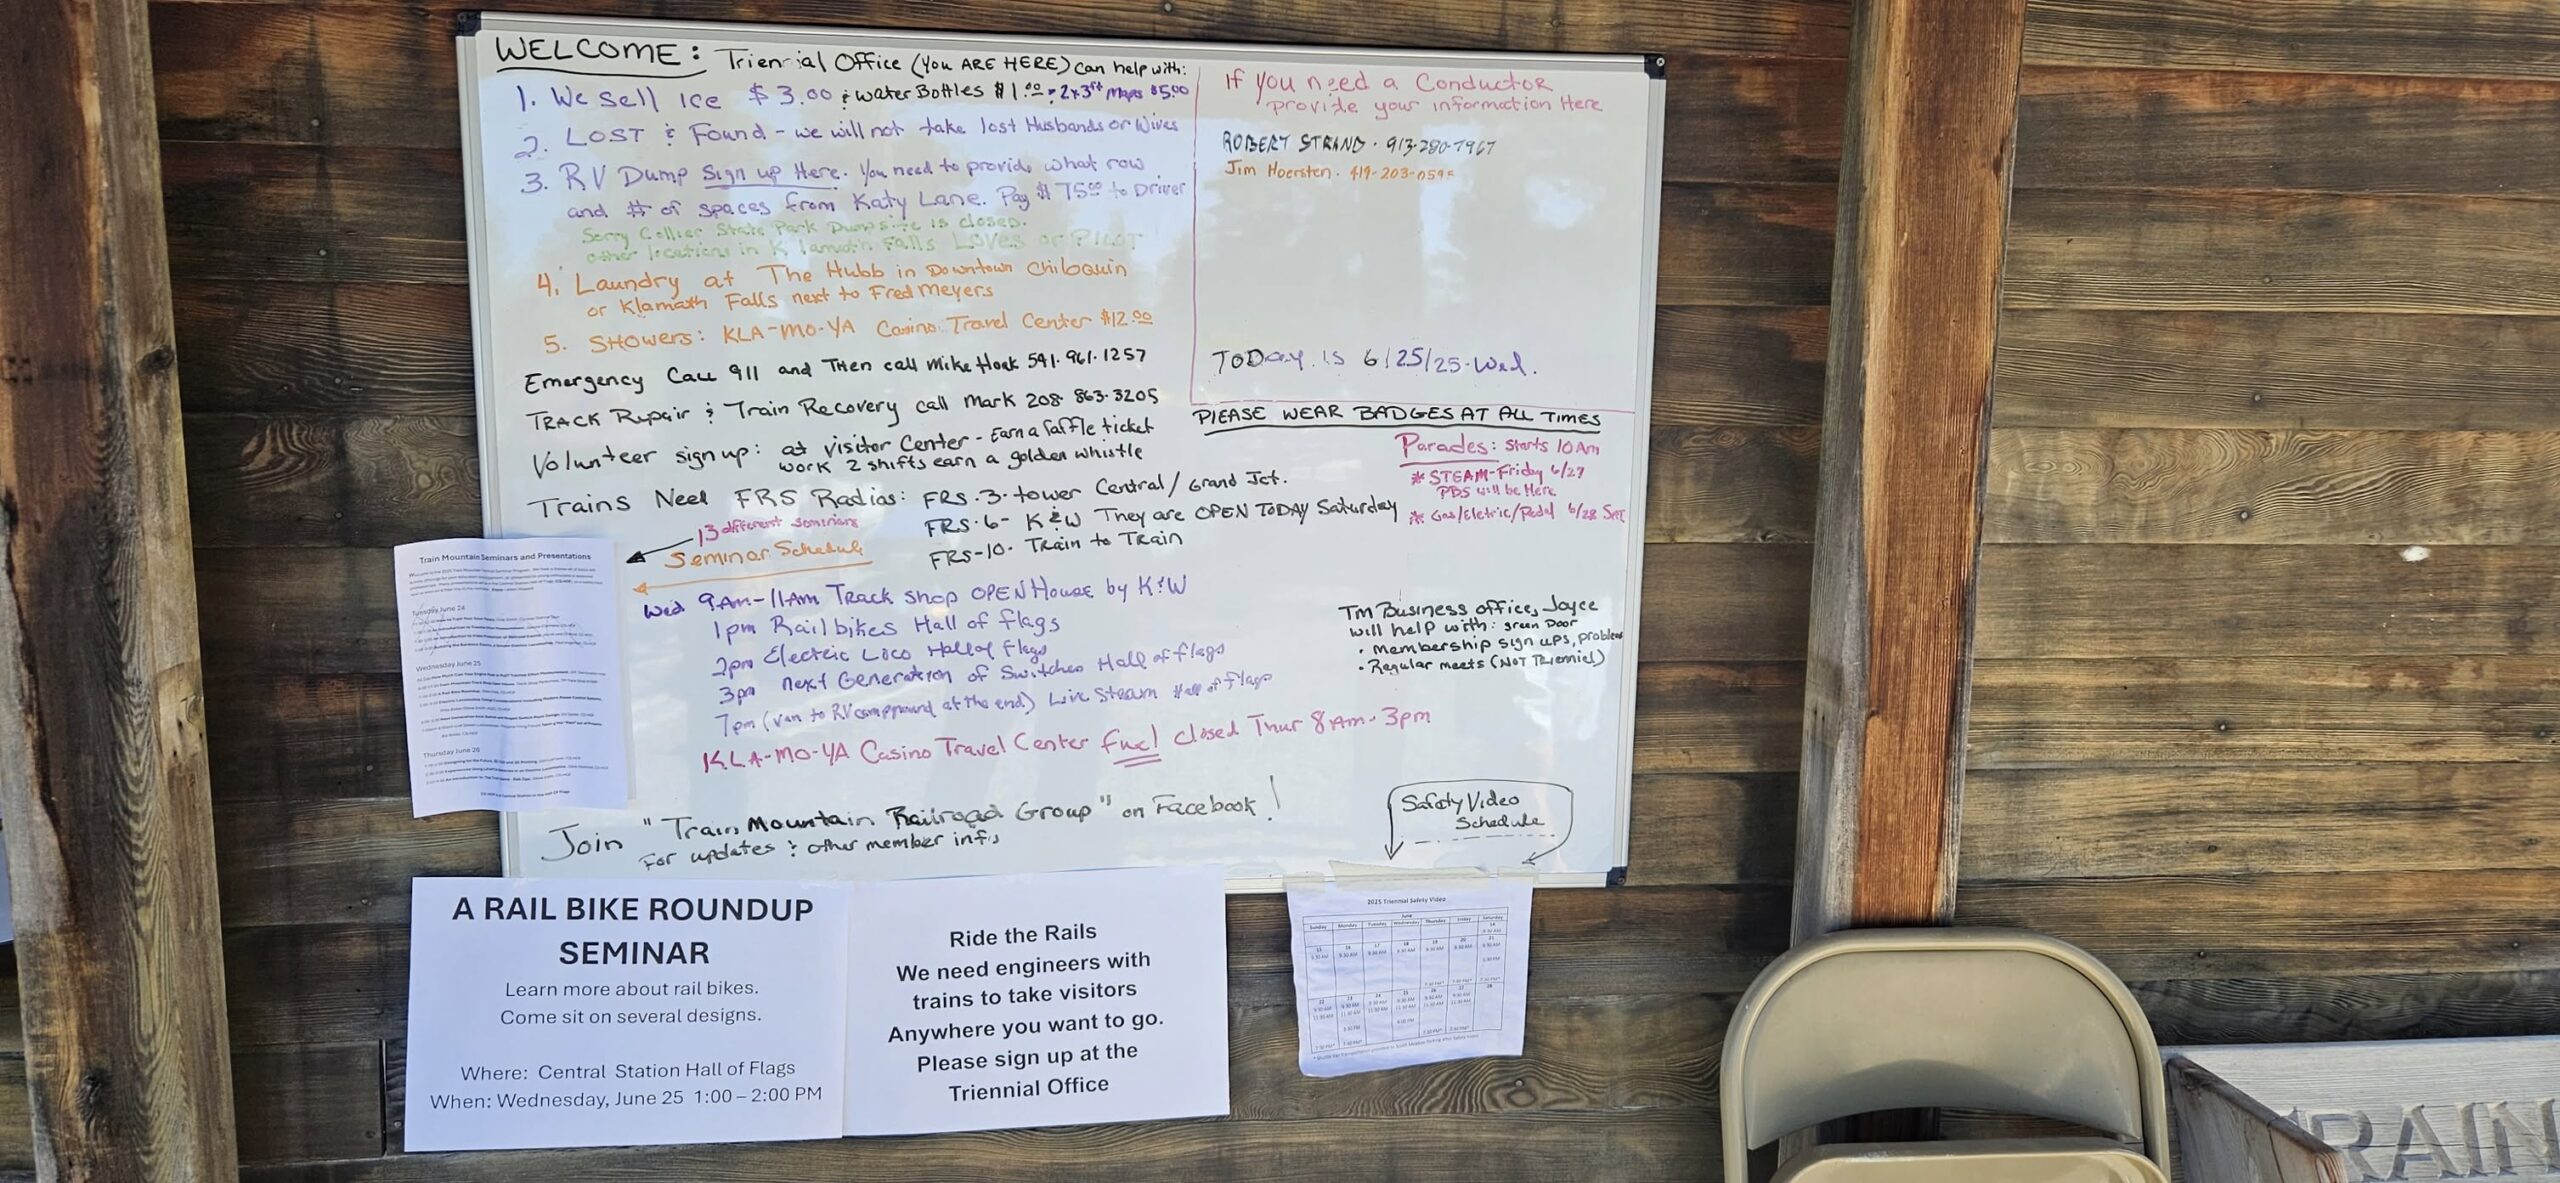 WELCOME: Triennial Office (You ARE HERE) can help with:
1. We Sell Ice $3.00 & water Bottles $1.00 2x3ft Maps $5.00
2. LOST & Found - we will not take lost Husbands or Wives
3. RV Dump Sign up Here. You need to provide what row
and # of spaces from Katy Lane. Pay $75.00 to Driver
Sorry Collier State Park Dumpsite is closed.
other locations in Klamath Falls LOVES or PILOT
4. Laundry at The Hubb in Downtown Chiloquin
or Klamath Falls next to Fred Meyers
5. SHowers: KLA-MO-YA Casino Travel Center $12.00
Emergency Call 911 and Then call Mike Hoak 541.961.1257
TRACK Repair & Train Recovery call Mark 208 863.3205
Volunteer sign up: at visitor Center - Earn a raffle ticket
work 2 shifts earn a golden whistle
Trains Need FRS Radios: FRS.3. tower Central/Grand Jct.
FRS.6- K&W They are OPEN TODAY Saturday
FRS-10. Train to Train
13 different seminars
Seminar Schedule
Wed 9Am-11Am Track Shop OPEN House by K&W
1pm Railbikes Hall of flags
2pm Electric Loco Hall of flags
3pm next Generation of Switches Hall of flags
7pm (van to RV compound at the end) Live Steam Hall of flags
KLA-MO-YA Casino Travel Center fuel closed Thur 8Am-3pm
Join "Train Mountain Railroad Group" on Facebook!
For updates & other member info
If you need a Conductor
provide your information Here
ROBERT STRAND. 913-280-7967
Jim Hoersten. 419-203-
TODay is 6/25/25.Wed.
PLEASE WEAR BADGES AT ALL TIMES
Parades: Starts 10Am
* STEAM-Friday 6/27
PBS will be Here
* Gas/Eletric/Pedal 6/28 Sat
TM Business office, Joyce
will help with: green Door
• membership sign ups, problems
• Regular meets (NOT Triennial)
Safety Video
Schedule
Train Mountain Seminars and Presentations
Tuesday June 24
Wednesday June 25
Thursday June 26
A RAIL BIKE ROUNDUP
SEMINAR
Learn more about rail bikes.
Come sit on several designs.
Where: Central Station Hall of Flags
When: Wednesday, June 25 1:00 – 2:00 PM
Ride the Rails
We need engineers with
trains to take visitors
Anywhere you want to go.
Please sign up at the
Triennial Office
2025 Triennial Safety Video
June
Sunday Monday Tuesday Wednesday Thursday Friday Saturday
RAIN